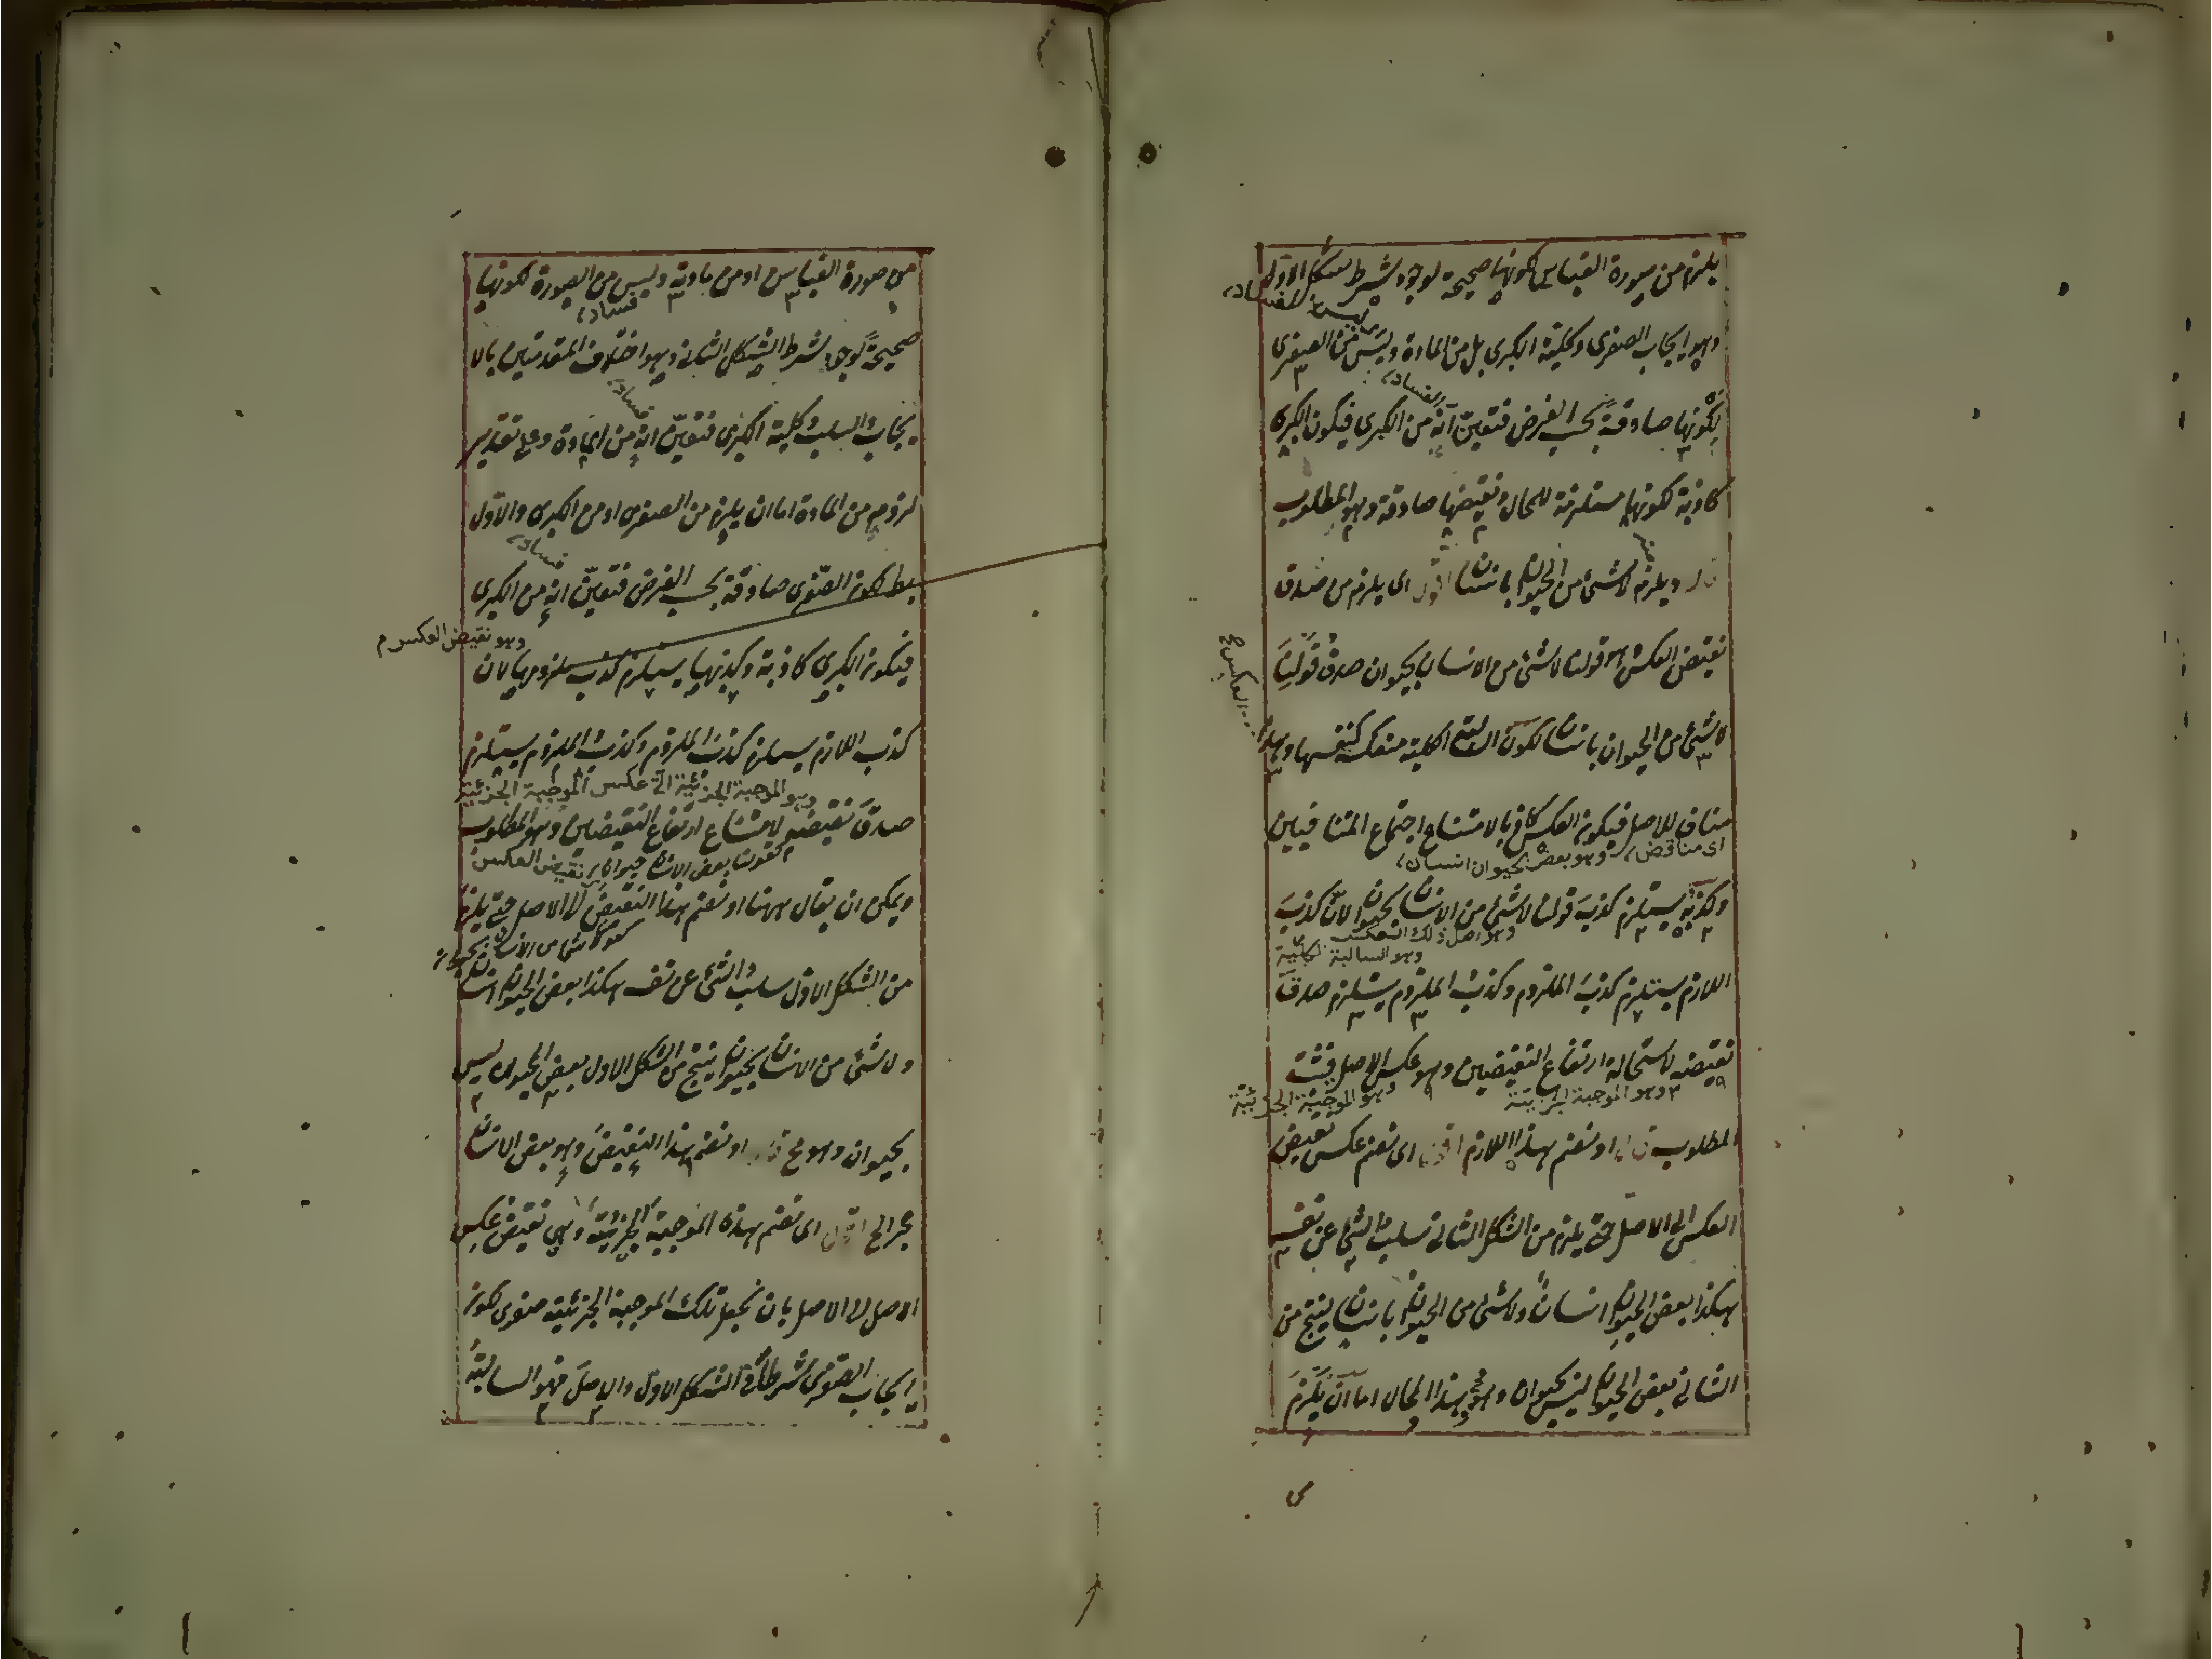 يلزم من صورة القياس لكونها صحيحة لوجود شرط شكل الاول
وهو ايجاب الصغرى وكلية الكبرى بل من المادة وليس من الصغرى
لكونها صادقة بحسب الفرض فتعين انه من الكبرى فيكون الكبرى
كاذبة لكونها مستلزمة للمحال ونقيضها صادقة وهو المطلوب
قال ويلزم لا شئ من الحيوان بانسان اقول اى يلزم من صدق
نقيض العكس هو قولنا لا شئ من الانسان بحيوان صدق قولنا
لا شئ من الحيوان بانسان لكون السالبة الكلية منعكسة كنفسها وهذا
مناف للاصل فيكون العكس كاذبا لامتناع اجتماع المتنافيين
اى مناقض وهو بعض الحيوان انسان
وكذبه يستلزم كذب قولنا لا شئ من الانسان بحيوان لان كذب
وهو اصل ذلك العكس
وهو السالبة الكلية
اللازم يستلزم كذب الملزوم وكذب الملزوم يستلزم صدق
نقيضه لاستحالة ارتفاع النقيضين وهو عكس الاصل فثبت
وهو الموجبة الجزئية وهو الموجبة الجزئية
المطلوب قال او نضم هذا اللازم اقول اى نضم عكس نقيض
العكس الى الاصل حتى يلزم من الشكل الثانى سلب الشئ عن نفسه
هكذا بعض الحيوان انسان ولا شئ من الحيوان بانسان ينتج من
الثانى بعض الحيوان ليس بحيوان وهو مح هذا المحال اما ان يلزم
من
من صورة القياس او من مادته وليس من الصورة لكونها
فساد
صحيحة لوجود شرط الشكل الثانى وهو اختلاف المقدمتين بالا
يجاب والسلب وكلية الكبرى فتعين انه من المادة وعلى تقدير
لزومه من المادة اما ان يلزم من الصغرى او من الكبرى والاول
فساد
بط لكون الصغرى صادقة بحسب الفرض فتعين انه من الكبرى
وهو نقيض العكس م
فيكون الكبرى كاذبة وكذبها يستلزم كذب ملزومها لان
كذب اللازم يستلزم كذب الملزوم وكذب الملزوم يستلزم
وهو الموجبة الجزئية اى عكس الموجبة الجزئية
صدق نقيضه لامتناع ارتفاع النقيضين وهو المطلوب
ويمكن ان يقال ههنا او نضم هذا النقيض الى الاصل حتى يلزم
كقولنا لا شئ من الانسان بحيوان
من الشكل الاول سلب الشئ عن نفسه هكذا بعض الحيوان انسان
ولا شئ من الانسان بحيوان ينتج من الشكل الاول بعض الحيوان ليس
بحيوان وهو مح قال او نضم هذا النقيض وهو بعض الانسان
حجر الخ اقول اى نضم هذه الموجبة الجزئية وهى نقيض عكس
الاصل الى الاصل بان نجعل تلك الموجبة الجزئية صغرى لكون
ايجاب الصغرى شرطا فى الشكل الاول والاصل فهو السالبة